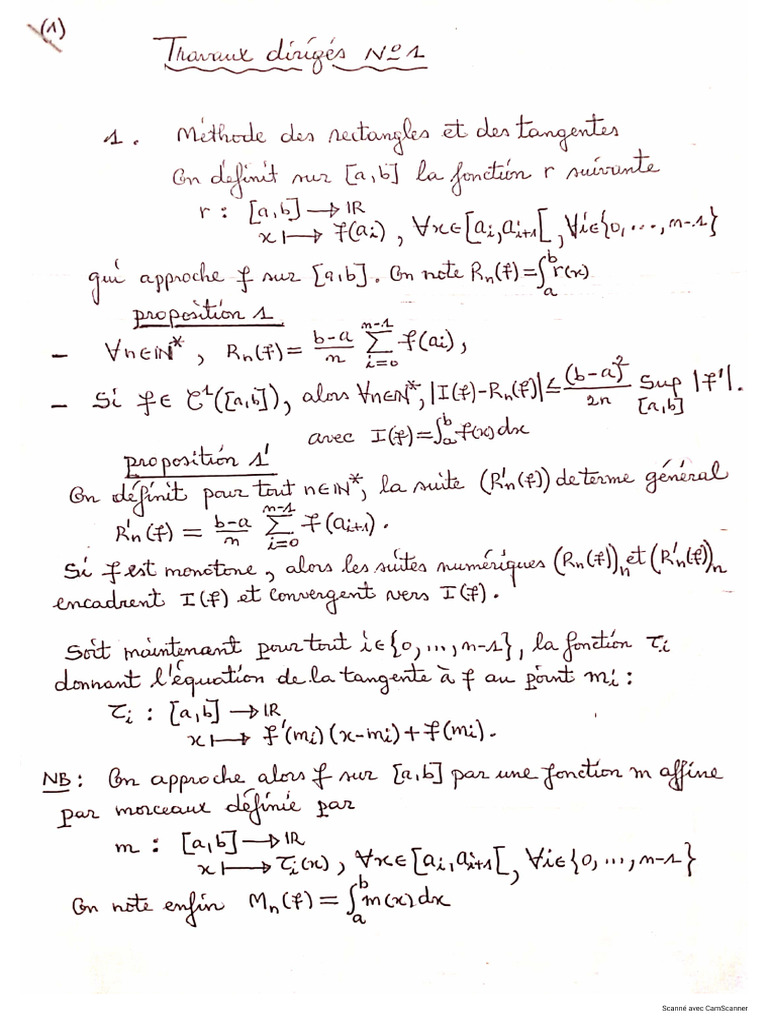 (1)
Travaux dirigés N°1
1. Méthode des rectangles et des tangentes
On definit sur [a,b] la fonction r suivante
r : [a,b] → IR
x ↦ f(ai), ∀x∈[ai,ai+1[, ∀i∈{0,...,n-1}
qui approche f sur [a,b]. On note Rn(f)=∫_a^b r(x)
proposition 1
- ∀n∈IN*, Rn(f)= (b-a)/n ∑_{i=0}^{n-1} f(ai),
- Si f∈ C¹([a,b]), alors ∀n∈IN*, |I(f)-Rn(f)|≤ (b-a)²/2n Sup_[a,b] |f'|.
avec I(f)=∫_a^b f(x)dx
proposition 1'
On définit pour tout n∈IN*, la suite (R'n(f)) de terme général
R'n(f) = (b-a)/n ∑_{i=0}^{n-1} f(ai+1).
Si f est monotone, alors les suites numériques (Rn(f))n et (R'n(f))n
encadrent I(f) et convergent vers I(f).
Soit maintenant pour tout i∈{0,...,n-1}, la fonction τi
donnant l'équation de la tangente à f au point mi :
τi : [a,b] → IR
x ↦ f'(mi)(x-mi)+f(mi).
NB : On approche alors f sur [a,b] par une fonction m affine
par morceaux définie par
m : [a,b] → IR
x ↦ τi(x), ∀x∈[ai,ai+1[, ∀i∈{0,...,n-1}
On note enfin Mn(f) = ∫_a^b m(x)dx
Scanné avec CamScanner